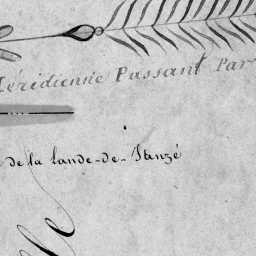 Méridienne Passant Par
de la lande-de-Stanzé